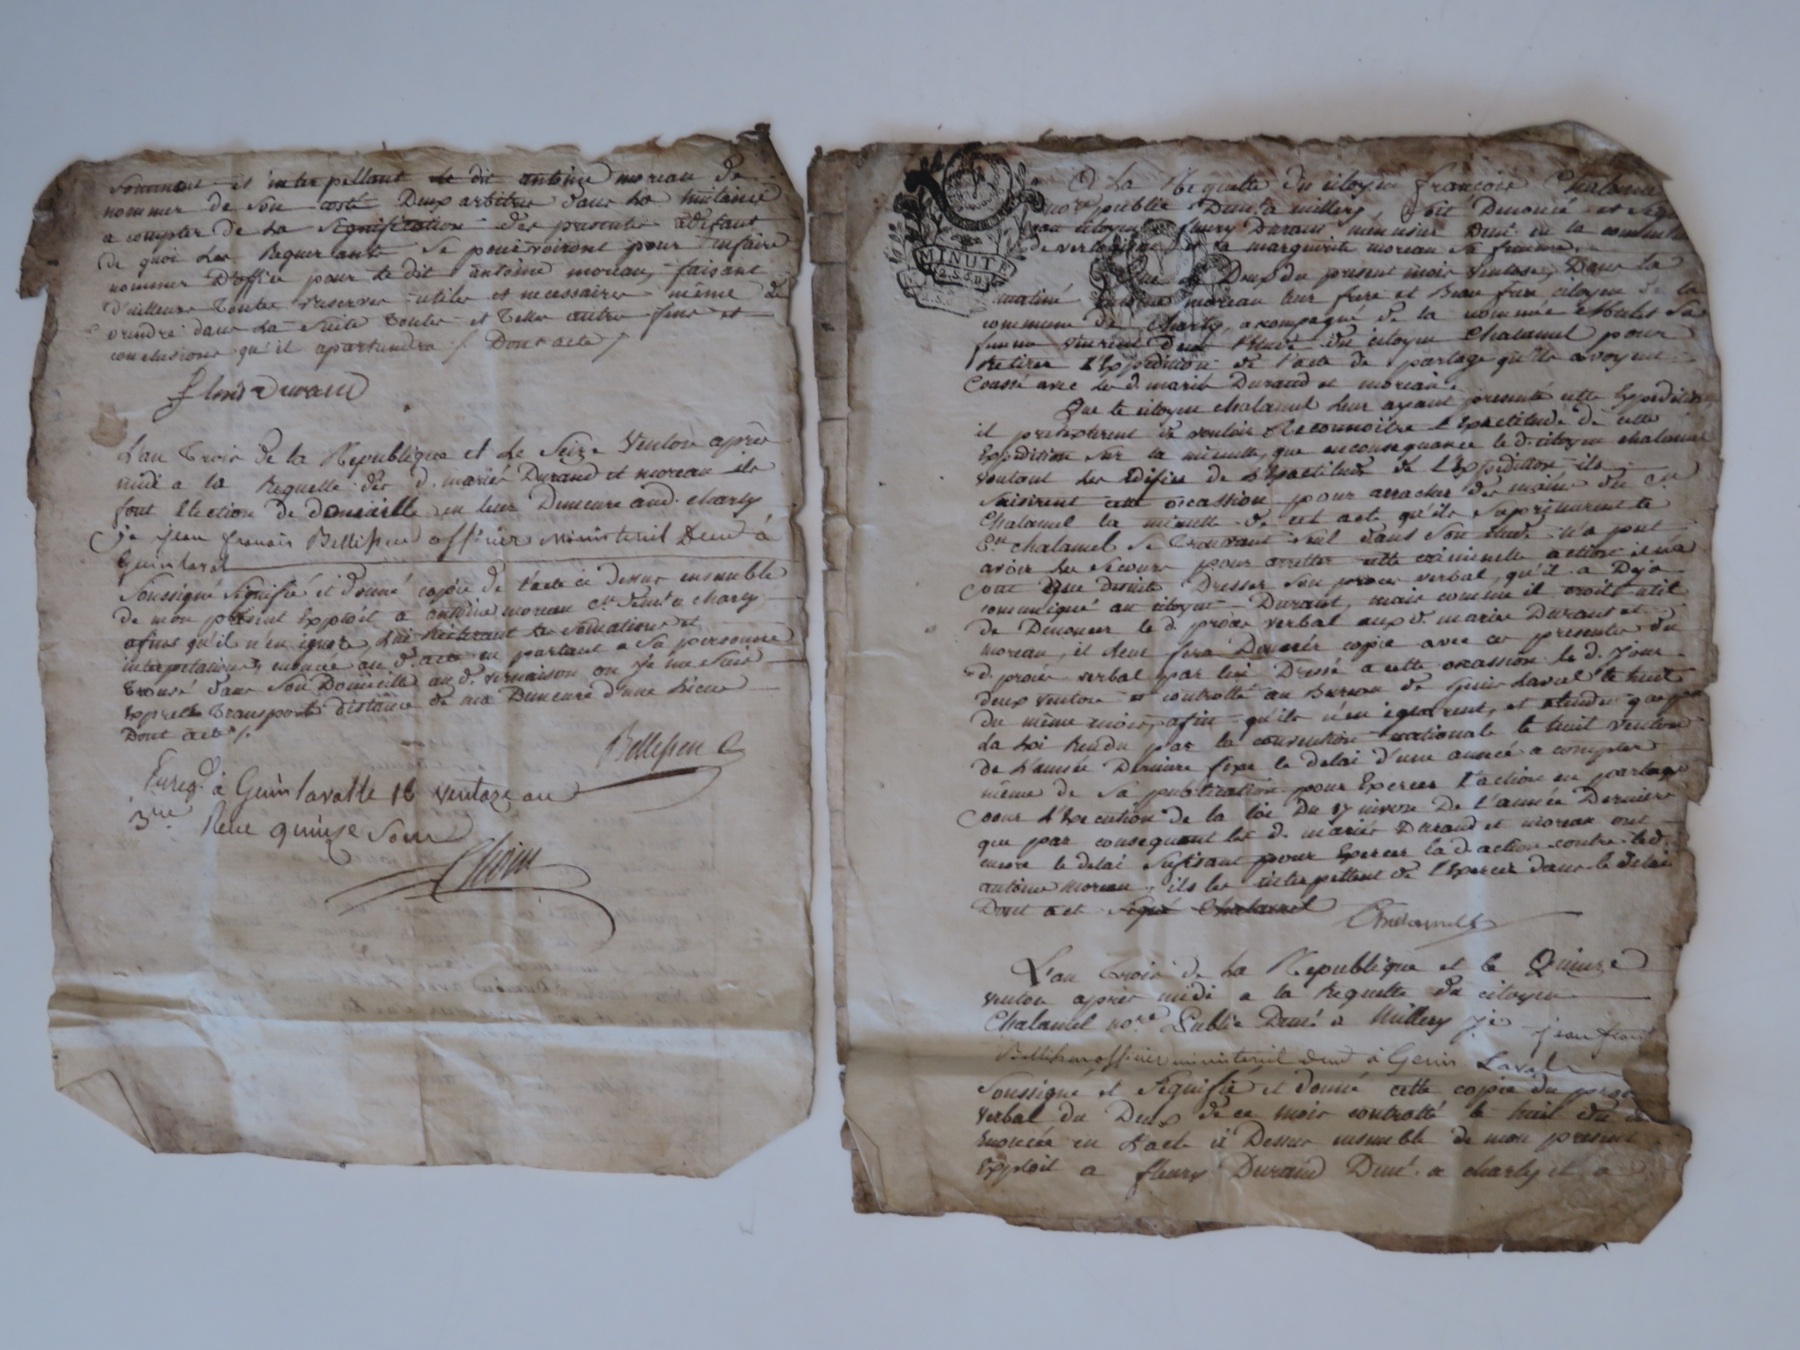 sommant et interpellant le dit antoine moreau de
nommer de son coté Deux arbitres dans la huitaine
a compter de la signification des presentes adefaut
de quoi les Requerants se pourvoiront pour enfaire
nommer D'office pour le dit antoine moreau, faisant
d'ailleurs toutes reserves utiles et necessaires même de
prendre dans la suite toutes et telles autre fins et
conclusions qu'il apartiendra / Dont acte /
fleury Durand
L'an trois de la Republique et le Seize Ventose après
midi a la Requette des d. mariés Durand et moreau ils
font Election de domicille en leur Demeure aud. charly
je jean françois Bellissen officier ministeriel Demt à
Genis laval
Soussigné signifié et donné copie de l'acte ci dessus ensemble
de mon présent Exploit à antoine moreau Cn. demt a charly
afins qu'il n'en ignore, Lui Reiterant les somations et
interpellations enoncée au d. acte en parlant a Sa personne
trouvé dans son Domicille au d. vernaison ou je me suis
Exprès transporté distance de ma Demeure d'une Lieue
Dont acte /.
Bellissen
Enregé à Genis laval le 16 ventoze an
3me Recu quinze sous
A La Requette du citoyen françois Chalamel
nore public Demt a millery, Soit Denoncé et signi
au citoyen fleury Durand menuisier Demt en la commune
de vernaison et a marguerite moreau sa femme
Que le Deux du present mois Ventose, Dans la
matiné antoine moreau leur frere et Beau frere citoyen de la
commune de charly, acompagné de la nommée sa
femme vinrent dans l'Etude du citoyen Chalamel pour
Retirer l'Expedition de l'acte de partage qu'ils avoyent
passé avec les d. mariés Durand et moreau.
Que le citoyen chalamel leur ayant presenté cette Expedition
il pretexterent de vouloir Reconnoitre l'Exactitude de cette
Expedition sur la minutte, que en consequance le d. citoyen chalamel
voulant les Edifier de l'Exactitude de l'Expedition, ils
saisirent cette occassion pour arracher des mains du Cn
Chalamel la minutte de cet acte qu'ils
Cn chalamel se trouvant seul dans son Etude n'a peut
avoir de secours pour arretter cette criminelle action il n'a
Dresser son proces verbal, qu'il a Deja
communiqué au citoyen Durand, mais comme il croit util
de Denoncer le d. procès verbal aux d. mariés Durand et
moreau, il leur sera Donnés copie avec ces presentes du
d. procès verbal par lui Dressé a cette occassion le d. jour
deux Ventose et controllé au Bureau de Genis Laval le huit
du même mois, afin qu'ils n'en ignorent, et attendu que
La Loi Rendu par la convention nationale le huit Ventose
de L'année Derniere fixe le delai d'une année a compter
même de Sa publication pour Exercer l'action en partage
pour L'Execution de la Loi Du 17 nivose De l'année Derniere
que par consequent les d. mariés Durand et moreau ont
encore le delai suffisant pour Exercer la d. action contre led.
antoine moreau, ils les interpellent de l'Exercer dans le delai
Dont act signé Chalamel
Chalamel
L'an trois de La Republique et le Quinze
Ventose après midi a la Requette du citoyen
Chalamel nore Public Demt a Millery je jean fran
Bellissen officier ministeriel demt à Genis Laval
Soussigné et signifié et donné cette copie du proc
verbal du Deux de ce mois controllé le huit du
Enoncée en L'acte ci Dessus ensemble de mon present
Exploit a fleury Durand Demt a charly et a
MINUTE